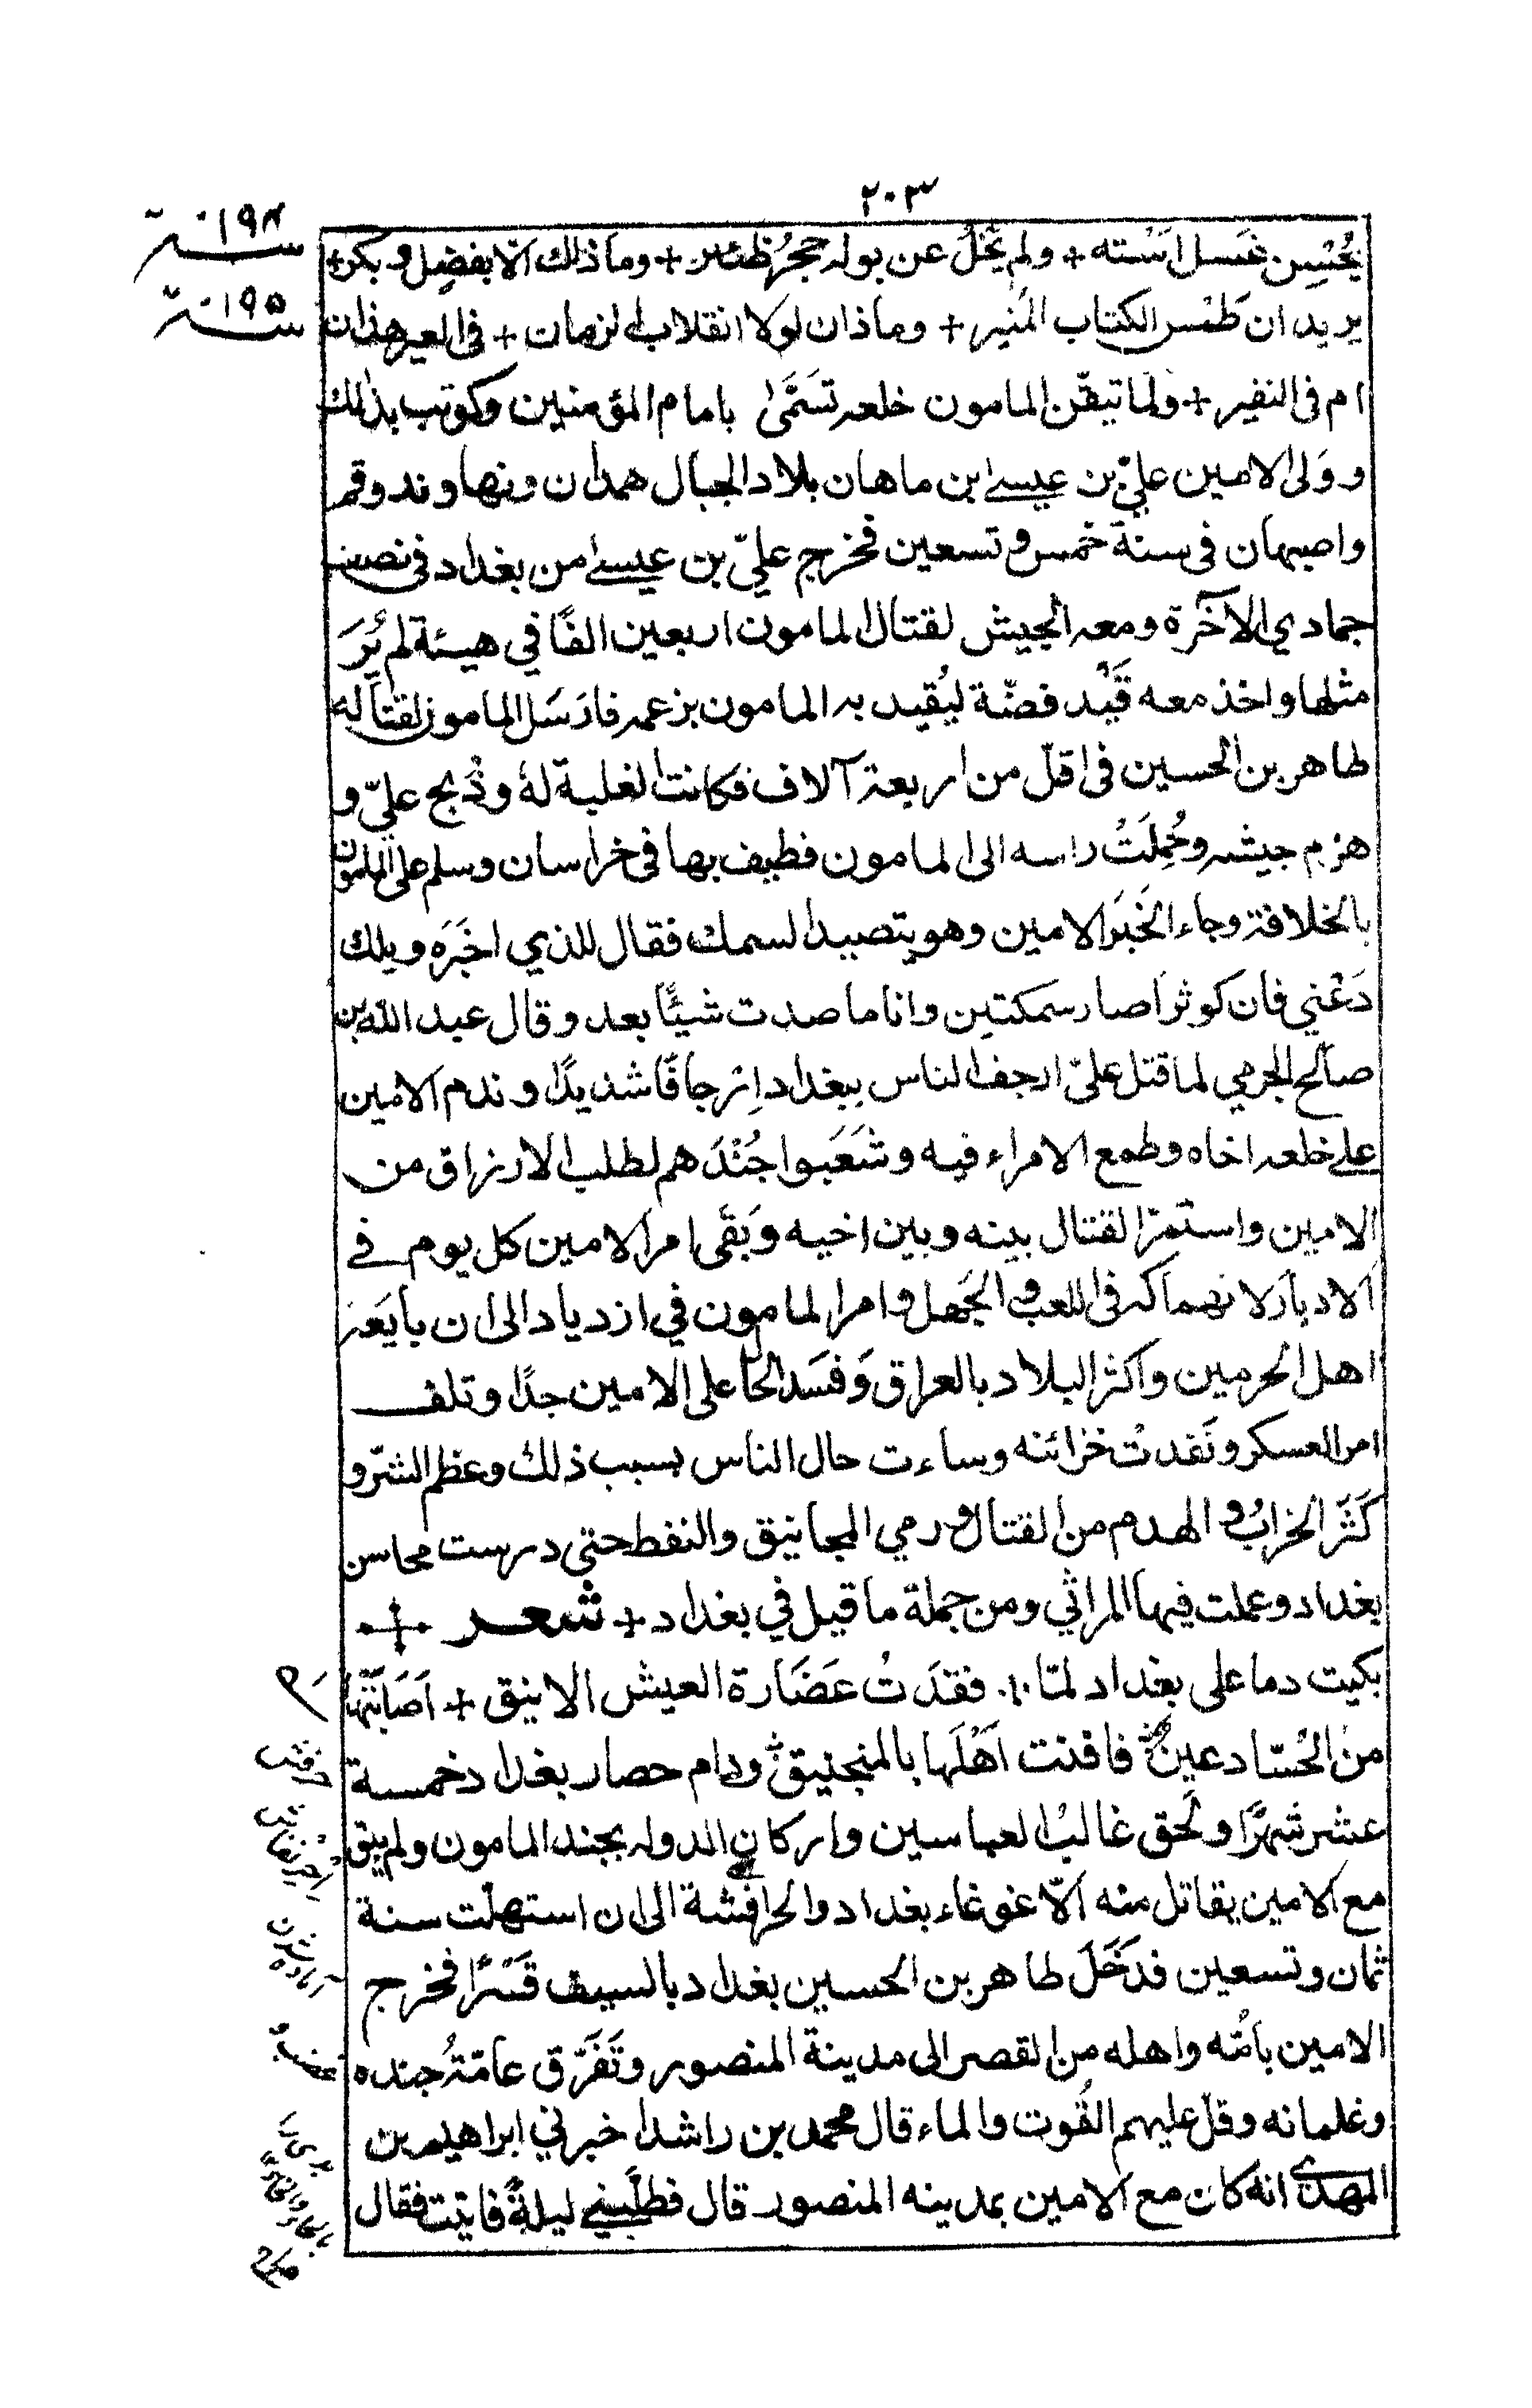 ٢٠٣
سنة ١٩٤
سنة ١٩٥
يُحْسِن غَسل اسْته + ولم يَخْلُ عن بوله حجرُ ظئر + وما ذلك الا بفضلٍ وبكر +
يريدان طَمْس الكتاب المُنير + وماذان لولا انقلاب الزمان + فى العير هذان
ام فى النفير + ولما تيقّن المامون خلعه تسَمَّى بامام المؤمنين وكوتب بذلك
ووَلى الامين عليّ بن عيسى ابن ماهان بلاد الجبال همدان ونهاوند وقم
واصبهان فى سنة خمس وتسعين فخرج عليّ بن عيسى من بغداد فى نصف
جمادي الآخرة ومعه الجيش لقتال المامون اربعين الفًا في هيئة لم يُرَ
مثلها واخذ معه قَيْد فضّة ليُقيد به المامون بزعمه فارسَل المامون لقتاله
طاهر بن الحسين فى اقلّ من اربعة آلاف فكانت الغلبة لهٗ وذُبح عليّ و
هزم جيشه وحُمِلَتْ راسه الى المامون فطيف بها فى خراسان وسلم على المامون
بالخلافة وجاء الخَبَر الامين وهو يتصيد السمك فقال للذي اخبَرَه ويلك
دَعْني فان كوثرا صاد سمكتين وانا ما صدت شيئًا بعد وقال عبد الله بن
صالح الجرمي لما قتل عليّ ارجف الناس ببغداد اِرجافًا شديدًا وندم الامين
على خلعه اخاه وطمع الامراء فيه وشَغَبوا جُنْدَهم لطلب الارزاق من
الامين واستمرّ القتال بينه وبين اخيه وبَقى امر الامين كل يوم فى
الادبار لانهماكه فى اللعب والجَهل وامر المامون في ازدياد الى ان بايَعَه
اهل الحرمين واكثر البلاد بالعراق وَفسَد الحال على الامين جدًا وتلف
امر العسكر ونَفدتْ خزائنه وساءت حال الناس بسبب ذلك وعظم الشرّ و
كَثَر الخرابُ والهدم من القتال ورمي المجانيق والنفط حتى درست محاسن
بغداد وعملت فيها المراثي ومن جملة ما قيل في بغداد + شعر +
بكيت دما على بغداد لمّا ۰۱۰ فقدَتُ غَضَارة العيش الانيق + اَصَابَتْها
من الحُسّاد عينٌ فافنت اَهْلَها بالمنجنيق ودام حصار بغداد خمسة
عشر شهرًا ولَحق غالبُ العباسين واركان الدوله بجند المامون ولم يبق
مع الامين يقاتل منه الّا غوغاء بغداد والحرافشة الى ان استهلّت سنة
ثمان وتسعين فدَخَلَ طاهر بن الحسين بغداد بالسيف قَسْرًا فخرج
الامين بامّه واهله من القصر الى مدينة المنصور وتَفَرّق عامّةُ جنده
وغلمانه وقلّ عليهم القُوت والماء قال محمد بن راشد اخبرني ابراهيم بن
المهدي انه كان مع الامين بمدينه المنصور قال فطلَبني ليلةً فاتيت فقال